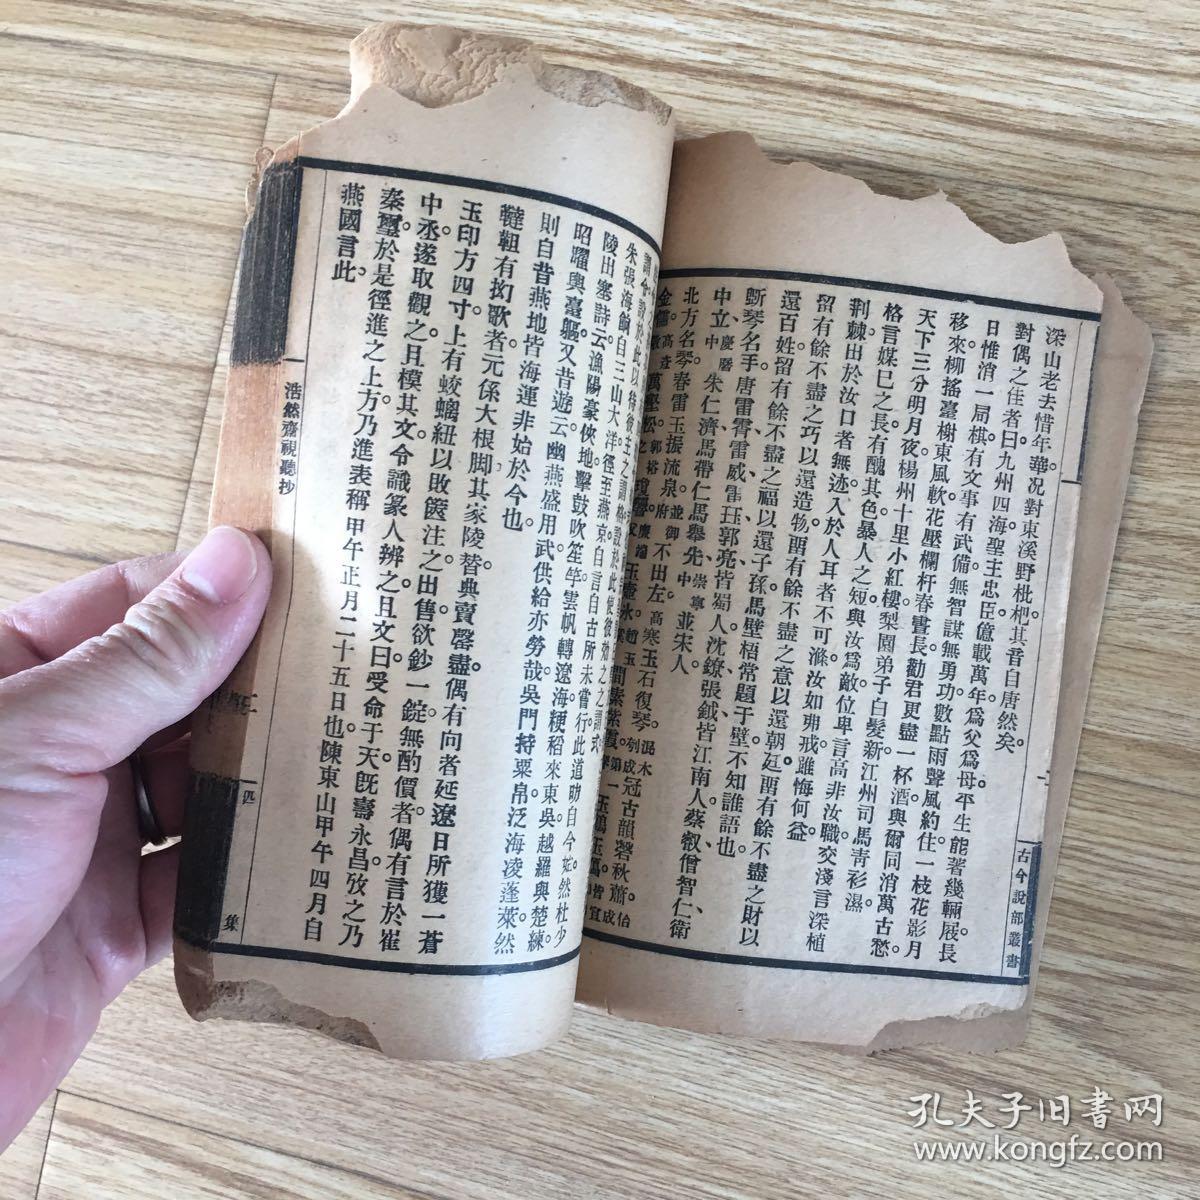 深山老去惜年華況對東溪野枇杷其音自唐然矣。
對偶之佳者曰九州四海聖主忠臣億載萬年爲父爲母平生能著幾輛屐長
日惟消一局棋有文事有武備無智謀無勇功數點雨聲風約住一枝花影月
移來柳搖臺榭東風軟花壓欄杆春晝長勸君更盡一杯酒與爾同消萬古愁
天下三分明月夜楊州十里小紅樓梨園弟子白髮新江州司馬靑衫濕
格言媒已之長有醜其色暴人之短與汝爲敵位卑言高非汝職交淺言深植
荆棘出於汝口者無迹入於人耳者不可滌汝如弗戒雖悔何益
留有餘不盡之巧以還造物留有餘不盡之意以還朝廷留有餘不盡之財以
還百姓留有餘不盡之福以還子孫馬壁梧常題于壁不知誰語也
斵琴名手唐雷霄雷威雷珏郭亮皆蜀人沈鐐張鉞皆江南人蔡叡僧智仁衛
中立慶曆中朱仁濟馬帶仁馬舉先崇寧中並宋人
北方名琴春雷玉振流泉並御府不出左高寒玉石復琴混木刳成冠古韻磬秋蕭伯
朱張海餉自三山大洋徑至燕京自言自古所未嘗行此道昉自今茲然杜少
陵出塞詩云漁陽豪俠地擊鼓吹笙竽雲帆轉遼海粳稻來東吳越羅與楚練
昭曜輿臺軀又昔遊云幽燕盛用武供給亦勞哉吳門持粟帛泛海凌蓬萊然
則自昔燕地皆海運非始於今也
韃靼有抝歌者元係大根脚其家陵替典賣罄盡偶有向者延遼日所獲一蒼
玉印方四寸上有蛟螭紐以敗篋注之出售欲鈔一錠無酌價者偶有言於崔
中丞遂取觀之且模其文令識篆人辨之且文曰受命于天旣壽永昌攷之乃
秦璽於是徑進之上方乃進表稱甲午正月二十五日也陳東山甲午四月自
燕國言此
古今說部叢書
浩然齋視聽抄
四
集
孔夫子旧書网
www.kongfz.com